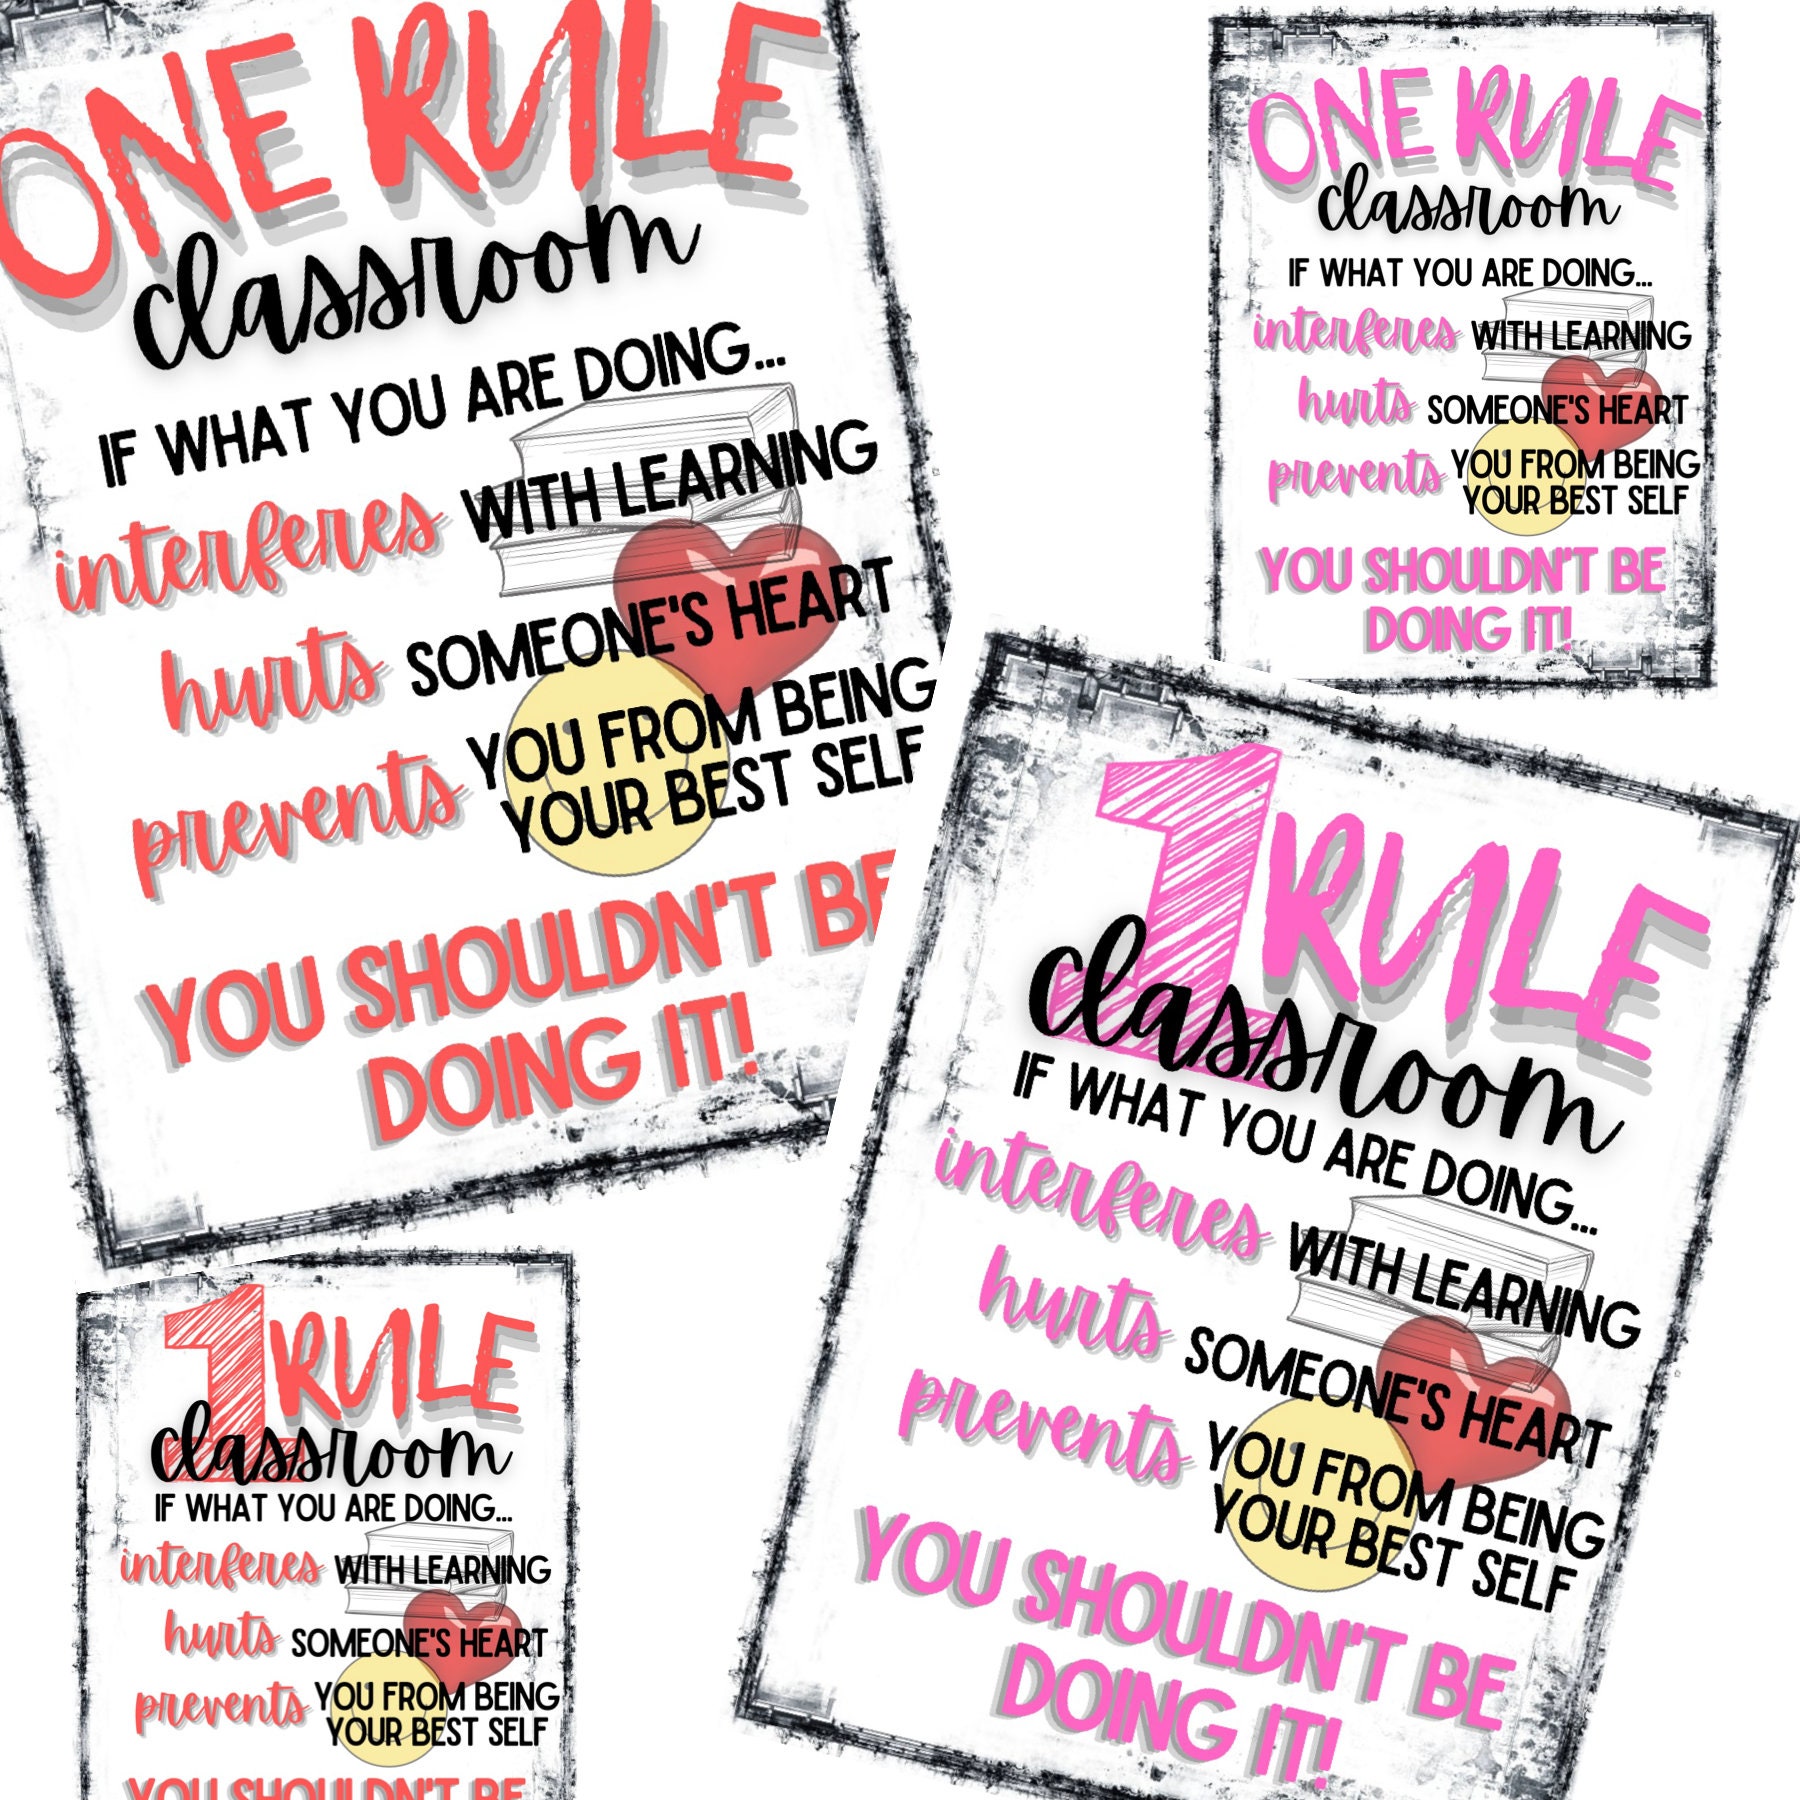 ONE RULE
classroom
IF WHAT YOU ARE DOING...
interferes WITH LEARNING
hurts SOMEONE'S HEART
prevents YOU FROM BEING
YOUR BEST SELF
YOU SHOULDN'T BE
DOING IT!
ONE RULE
classroom
IF WHAT YOU ARE DOING...
interferes WITH LEARNING
hurts SOMEONE'S HEART
prevents YOU FROM BEING
YOUR BEST SELF
YOU SHOULDN'T BE
DOING IT!
1 RULE
classroom
IF WHAT YOU ARE DOING...
interferes WITH LEARNING
hurts SOMEONE'S HEART
prevents YOU FROM BEING
YOUR BEST SELF
YOU SHOULDN'T BE
DOING IT!
1 RULE
classroom
IF WHAT YOU ARE DOING...
interferes WITH LEARNING
hurts SOMEONE'S HEART
prevents YOU FROM BEING
YOUR BEST SELF
YOU SHOULDN'T BE